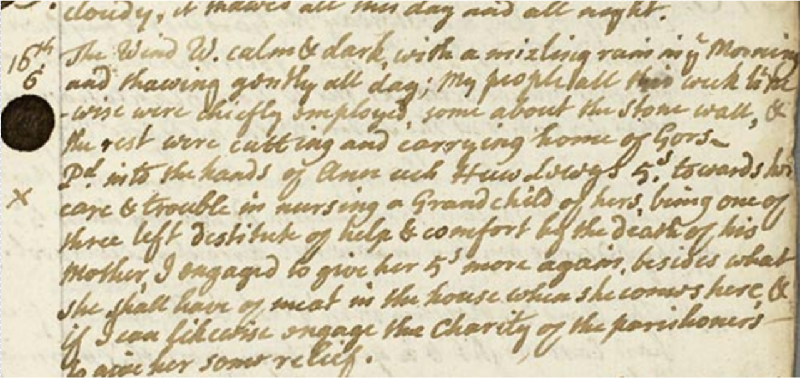 cloudy, it thawed all this day and all night.
16th The Wind W. calm & dark, with a mizling rain in ye Morning
6. and thawing gently all day; my people all this week like
-wise were chiefly employed, some about the stone wall, &
the rest were cutting and carrying home of Gors~
Pd. into the hands of Ann uch Huw 5s. towards her
X care & trouble in nursing a Grandchild of hers, being one of
three left destitute of help & comfort by the death of his
Mother, I engaged to give her 5s more again, besides what
she shall have of meat in the house when she comes here, &
if I can likewise engage the Charity of the parishoners
to give her some relief.